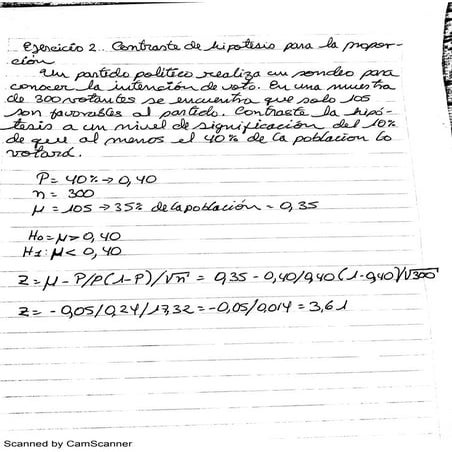 Ejercicio 2.. Contraste de hipotesis para la propor-
ción
Un partido politico realiza un sondeo para
conocer la intención de voto. En una muestra
de 300 votantes se encuentra que solo 105
son favorables al partido. Contraste la hipó-
tesis a un nivel de significación del 10%
de que al menos el 40% de la poblacion lo
votará.
P = 40% → 0,40
n = 300
μ = 105 → 35% de la población = 0,35
H0 = μ > 0,40
H1: μ < 0,40
Z = μ - P/P(1-P)/√n = 0,35 - 0,40/0,40(1-0,40)/√300
Z = -0,05/0,24/17,32 = -0,05/0,014 = 3,61
Scanned by CamScanner